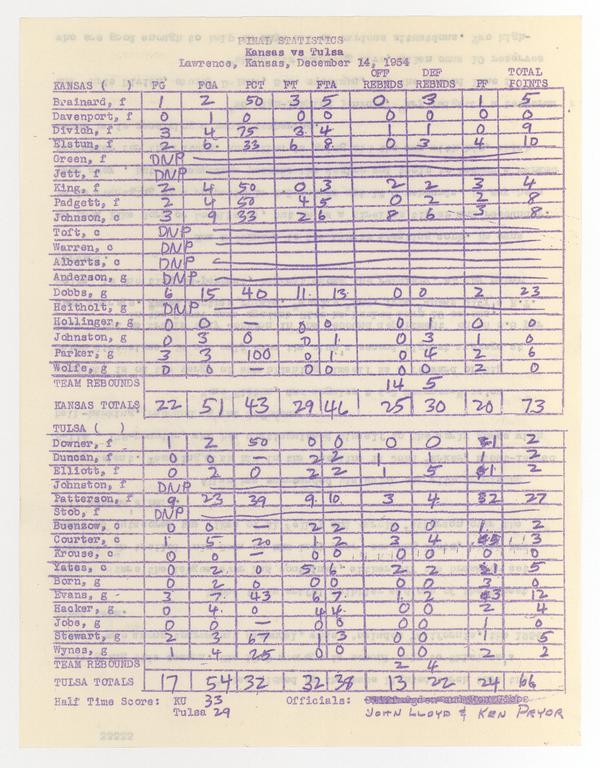 FINAL STATISTICS
Kansas vs Tulsa
Lawrence, Kansas, December 14, 1954
OFF DEF TOTAL
KANSAS ( ) FG FGA PCT FT FTA REBNDS REBNDS PF POINTS
Brainard, f 1 2 50 3 5 0 3 1 5
Davenport, f 0 1 0 0 0 0 0 0 0
Divich, f 3 4 75 3 4 1 1 0 9
Elstun, f 2 6 33 6 8 0 3 4 10
Green, f DNP
Jett, f DNP
King, f 2 4 50 0 3 2 2 3 4
Padgett, f 2 4 50 4 5 0 2 2 8
Johnson, c 3 9 33 2 6 8 6 3 8
Toft, c DNP
Warren, c DNP
Alberts, c DNP
Anderson, g DNP
Dobbs, g 6 15 40 11 13 0 0 2 23
Heitholt, g DNP
Hollinger, g 0 0 — 0 0 0 1 0 0
Johnston, g 0 3 0 0 1 0 3 1 0
Parker, g 3 3 100 0 1 0 4 2 6
Wolfe, g 0 0 — 0 0 0 0 2 0
TEAM REBOUNDS 14 5
KANSAS TOTALS 22 51 43 29 46 25 30 20 73
TULSA ( )
Downer, f 1 2 50 0 0 0 0 1 2
Duncan, f 0 0 — 2 2 1 1 1 2
Elliott, f 0 2 0 2 2 1 5 1 2
Johnston, f DNP
Patterson, f 9 23 39 9 10 3 4 2 27
Stob, f DNP
Buenzow, c 0 0 — 2 2 0 0 1 2
Courter, c 1 5 20 1 2 3 4 5 3
Krouse, c 0 0 — 0 0 0 0 0 0
Yates, c 0 2 0 5 6 2 2 1 5
Born, g 0 2 0 0 0 0 0 3 0
Evans, g 3 7 43 6 7 1 2 3 12
Hacker, g 0 4 0 4 4 0 0 2 4
Jobe, g 0 0 — 0 0 0 0 1 0
Stewart, g 2 3 67 1 3 0 0 1 5
Wynes, g 1 4 25 0 0 0 0 2 2
TEAM REBOUNDS 2 4
TULSA TOTALS 17 54 32 32 38 13 22 24 66
Half Time Score: KU 33 Officials:
Tulsa 29 JOHN LLOYD & KEN PRYOR